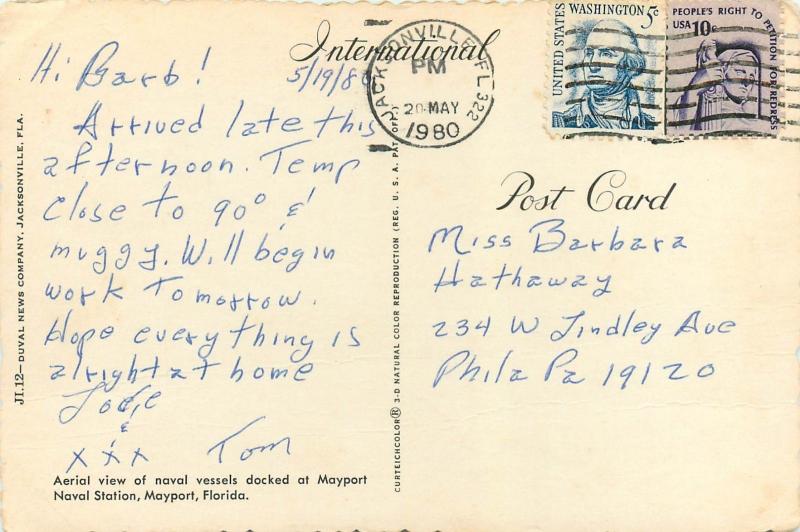 International
Hi Barb! 5/19/80
Arrived late this
afternoon. Temp
close to 90° &
muggy. Will begin
work tomorrow.
Hope everything is
alright at home
Love
&
xxx Tom
Aerial view of naval vessels docked at Mayport
Naval Station, Mayport, Florida.
JI.12—DUVAL NEWS COMPANY, JACKSONVILLE, FLA.
CURTEICHCOLOR® 3-D NATURAL COLOR REPRODUCTION (REG. U. S. A. PAT. OFF.)
JACKSONVILLE, FL 322
PM
20 MAY
1980
UNITED STATES
WASHINGTON 5c
PEOPLE'S RIGHT TO PETITION FOR REDRESS
USA 10c
Post Card
Miss Barbara
Hathaway
234 W Lindley Ave
Phila Pa 19120